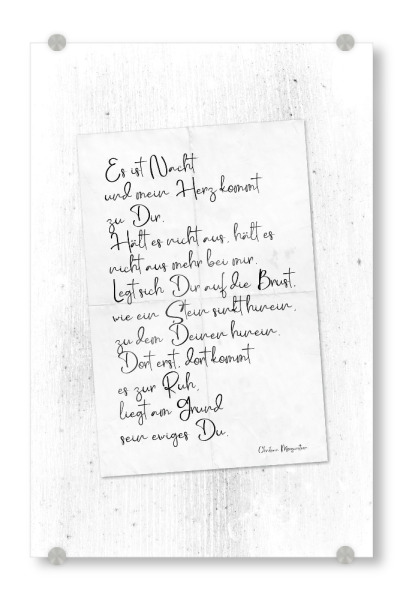 Es ist Nacht
und mein Herz kommt
zu Dir,
Hält es nicht aus, hält es
nicht aus mehr bei mir.
Legt sich Dir auf die Brust,
wie ein Stein sinkt hinein,
zu dem Deinen hinein.
Dort erst, dort kommt
es zur Ruh,
liegt am Grund
sein ewiges Du.
Christian Morgenstern